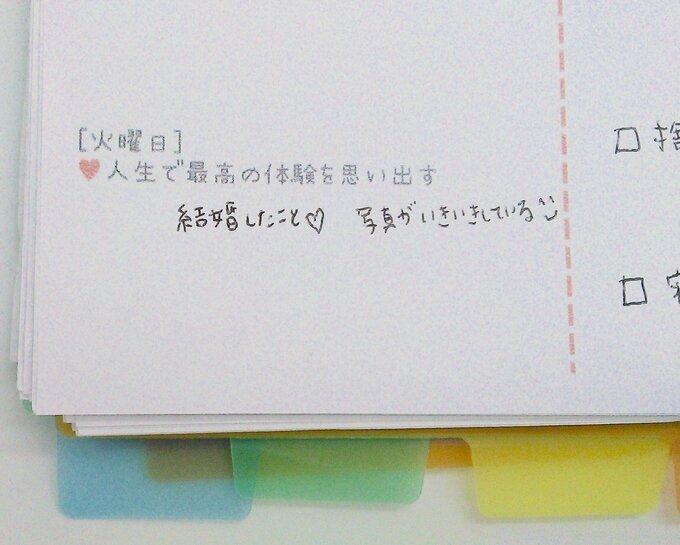 [火曜日]
♥人生で最高の体験を思い出す
結婚したこと♡ 写真がいきいきしている
□捨
□